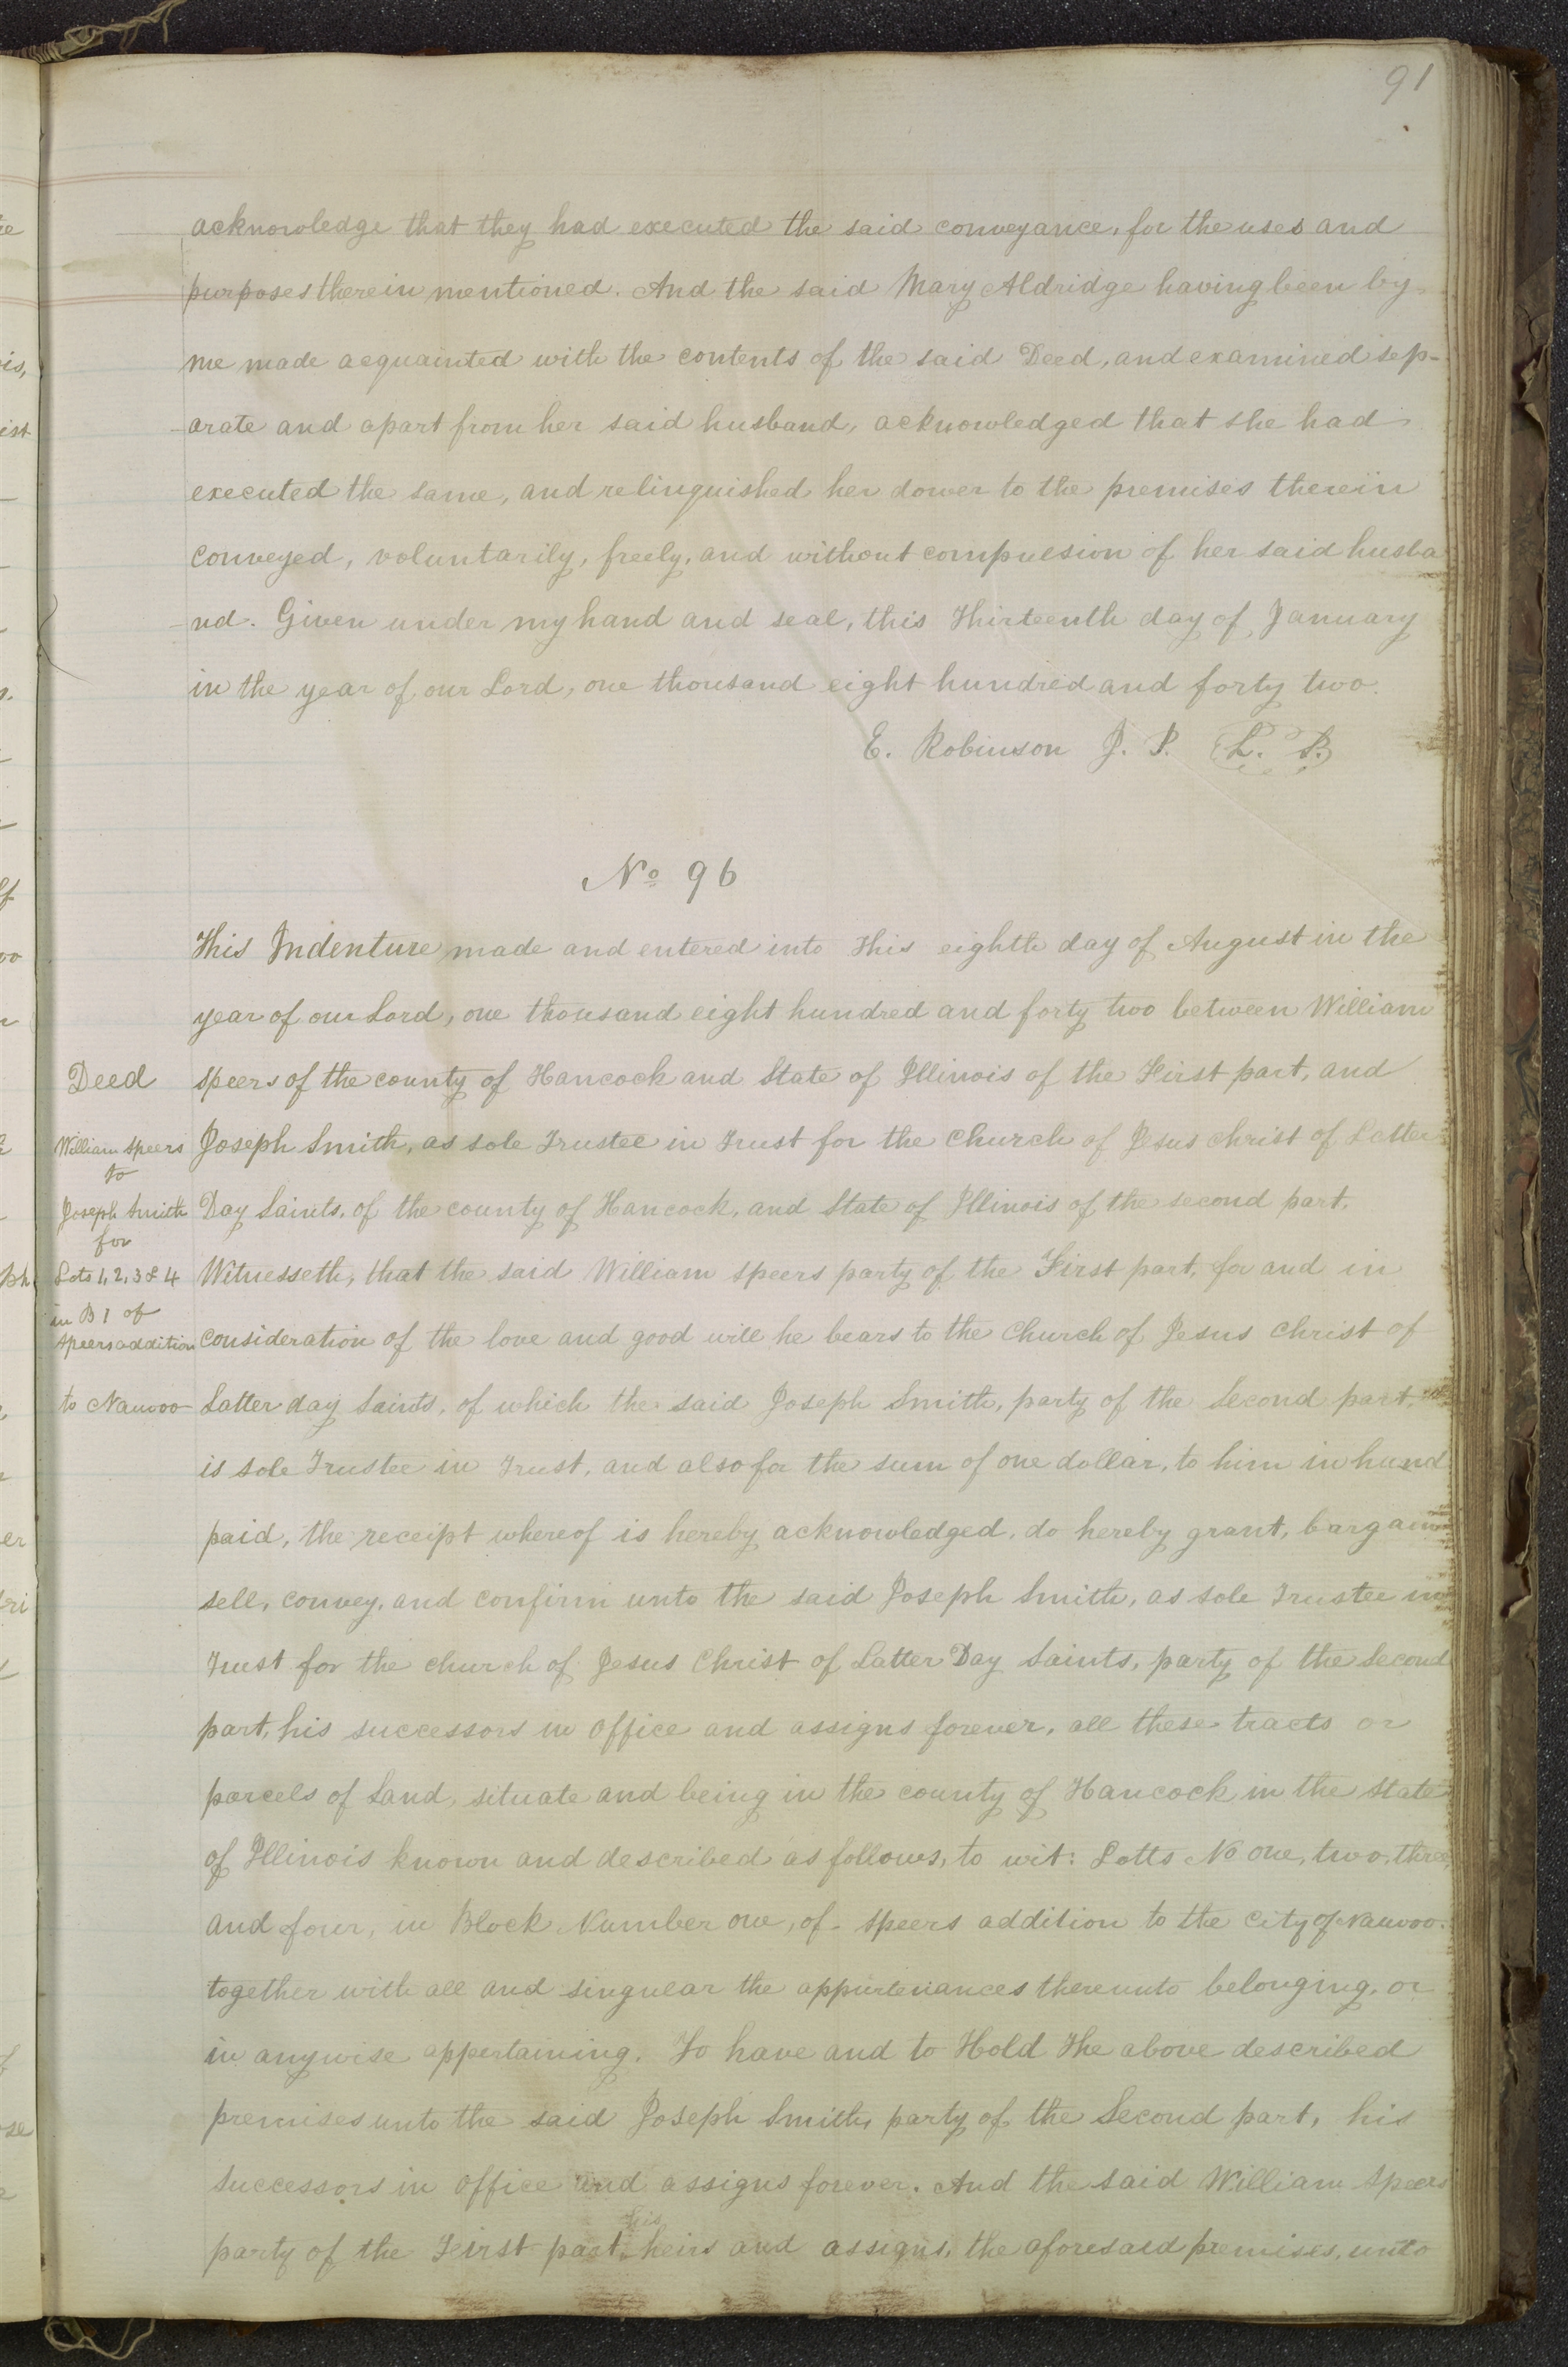 91
acknowledge that they had executed the said conveyance, for the uses and
purposes therein mentioned. And the said Mary Aldridge having been by
me made acquainted with the contents of the said Deed, and examined sep-
-arate and apart from her said husband, acknowledged that she had
executed the same, and relinquished her dower to the premises therein
conveyed, voluntarily, freely, and without compulsion of her said husba
-nd. Given under my hand and seal, this Thirteenth day of January
in the year of our Lord, one thousand eight hundred and forty two.
E. Robinson J. P. (L. S.)
No 96
This Indenture made and entered into this eighth day of August in the
year of our Lord, one thousand eight hundred and forty two between William
Speers of the county of Hancock and State of Illinois of the First part, and
Joseph Smith, as sole Trustee in Trust for the Church of Jesus Christ of Latter
Day Saints, of the county of Hancock, and State of Illinois of the second part.
Witnesseth, that the said William Speers party of the First part, for and in
consideration of the love and good will he bears to the Church of Jesus Christ of
Latter day Saints, of which the said Joseph Smith, party of the Second part,
is sole Trustee in Trust, and also for the sum of one dollar, to him in hand
paid, the receipt whereof is hereby acknowledged, do hereby grant, bargain
sell, convey, and confirm unto the said Joseph Smith, as sole Trustee in
Trust for the church of Jesus Christ of Latter Day Saints, party of the Second
part, his successors in office and assigns forever, all these tracts or
parcels of Land, situate and being in the county of Hancock in the State
of Illinois known and described as follows, to wit: Lotts No one, two, three,
and four, in Block Number one, of Speers addition to the City of Nauvoo.
together with all and singular the appurtenances thereunto belonging, or
in anywise appertaining. To have and to Hold the above described
premises unto the said Joseph Smith, party of the Second part, his
successors in office and assigns forever. And the said William Speers
party of the First part, his heirs and assigns, the aforesaid premises, unto
Deed
William Speers
to
Joseph Smith
for
Lots 1, 2, 3 & 4
in B 1 of
Speers addition
to Nauvoo